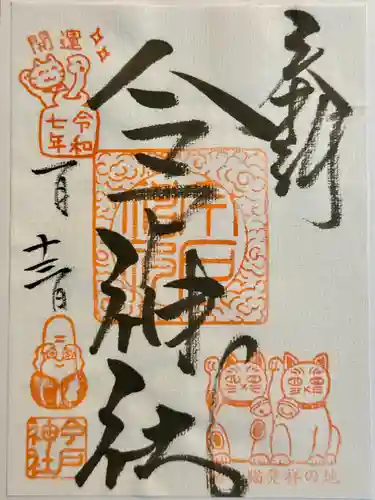 奉拝
今戸神社
今戸神社
猫発祥の地
開運
令和
七年
一月
十三日
今戸
神社